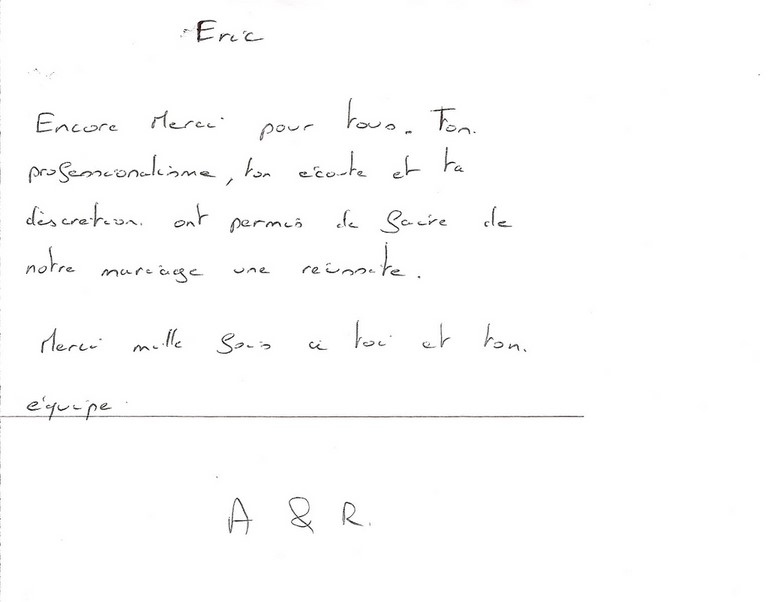 Eric
Encore Merci pour tous. Ton
professionalisme, ton écoute et ta
discretion ont permis de faire de
notre mariage une réussite.
Merci mille fois à toi et ton
équipe
A & R.